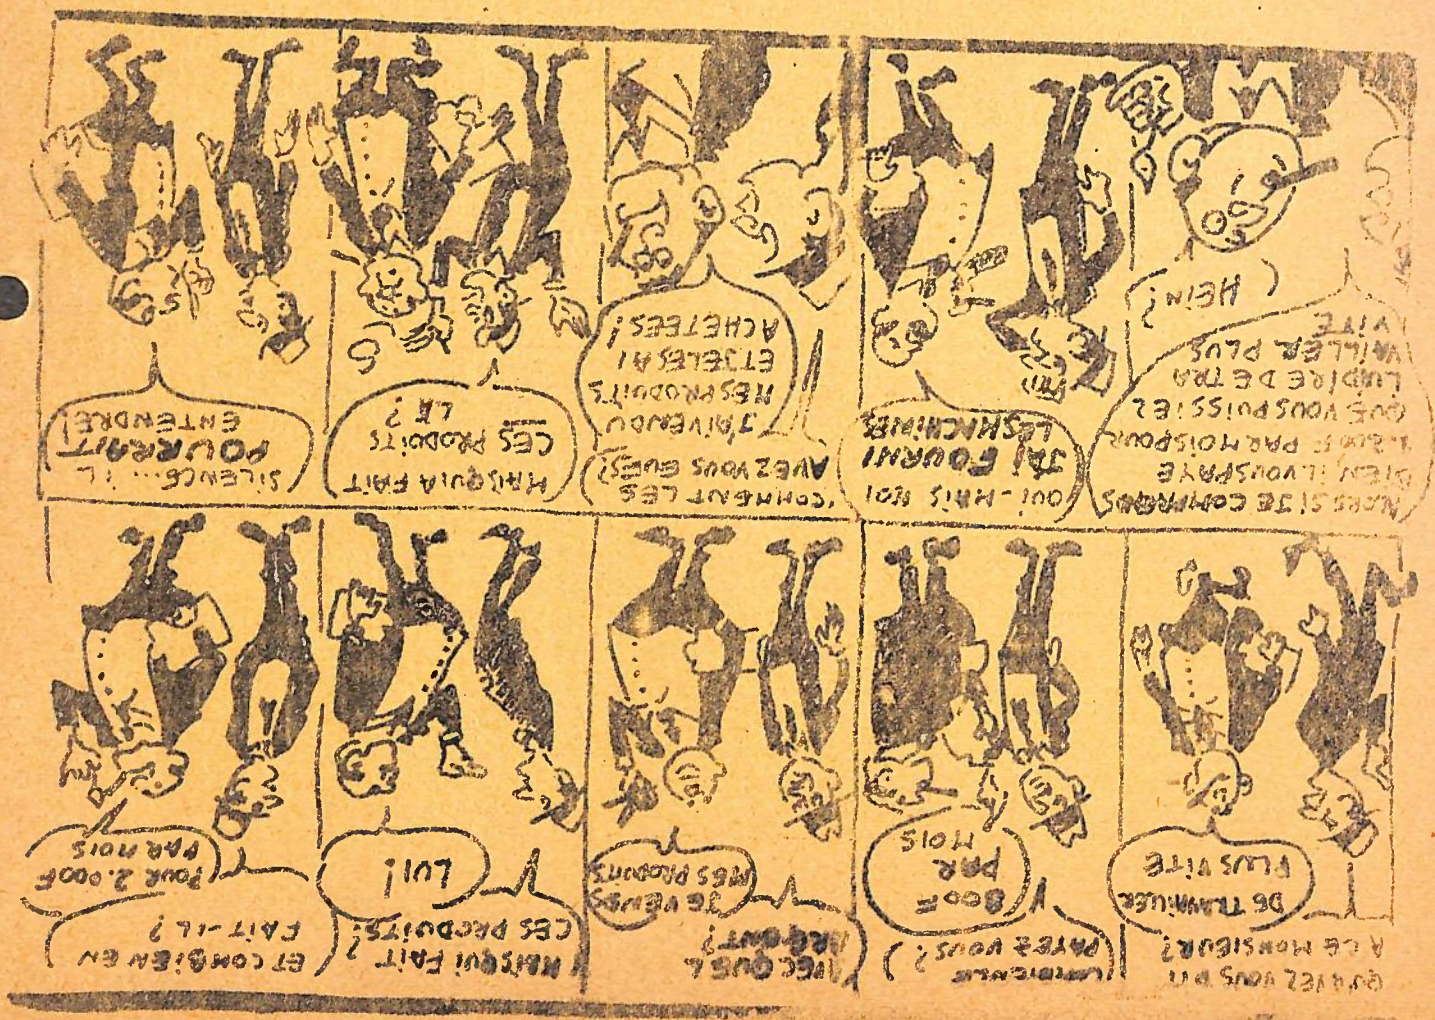 QU'AVEZ VOUS DIT
A CE MONSIEUR?
DE TRAVAILLER
PLUS VITE
COMBIEN LE
PAYEZ VOUS?
800F
PAR
MOIS
AVEC QUEL
ARGENT?
JE VENDS
MES PRODUITS
MAIS QUI FAIT
CES PRODUITS?
LUI!
ET COMBIEN EN
FAIT-IL?
POUR 2.000F
PAR MOIS
ALORS SI JE COMPRENDS
BIEN, IL VOUS PAYE
1.200F PAR MOIS POUR
QUE VOUS PUISSIEZ
LUI DIRE DE TRA
VAILLER PLUS
VITE
HEIN!
OUI-MAIS MOI
J'AI FOURNI
LES MACHINES
COMMENT LES
AVEZ VOUS EUES?
J'AI VENDU
MES PRODUITS
ET JE LES AI
ACHETEES!
MAIS QUI A FAIT
CES PRODUITS
LA?
SILENCE... IL
POURRAIT
ENTENDRE!